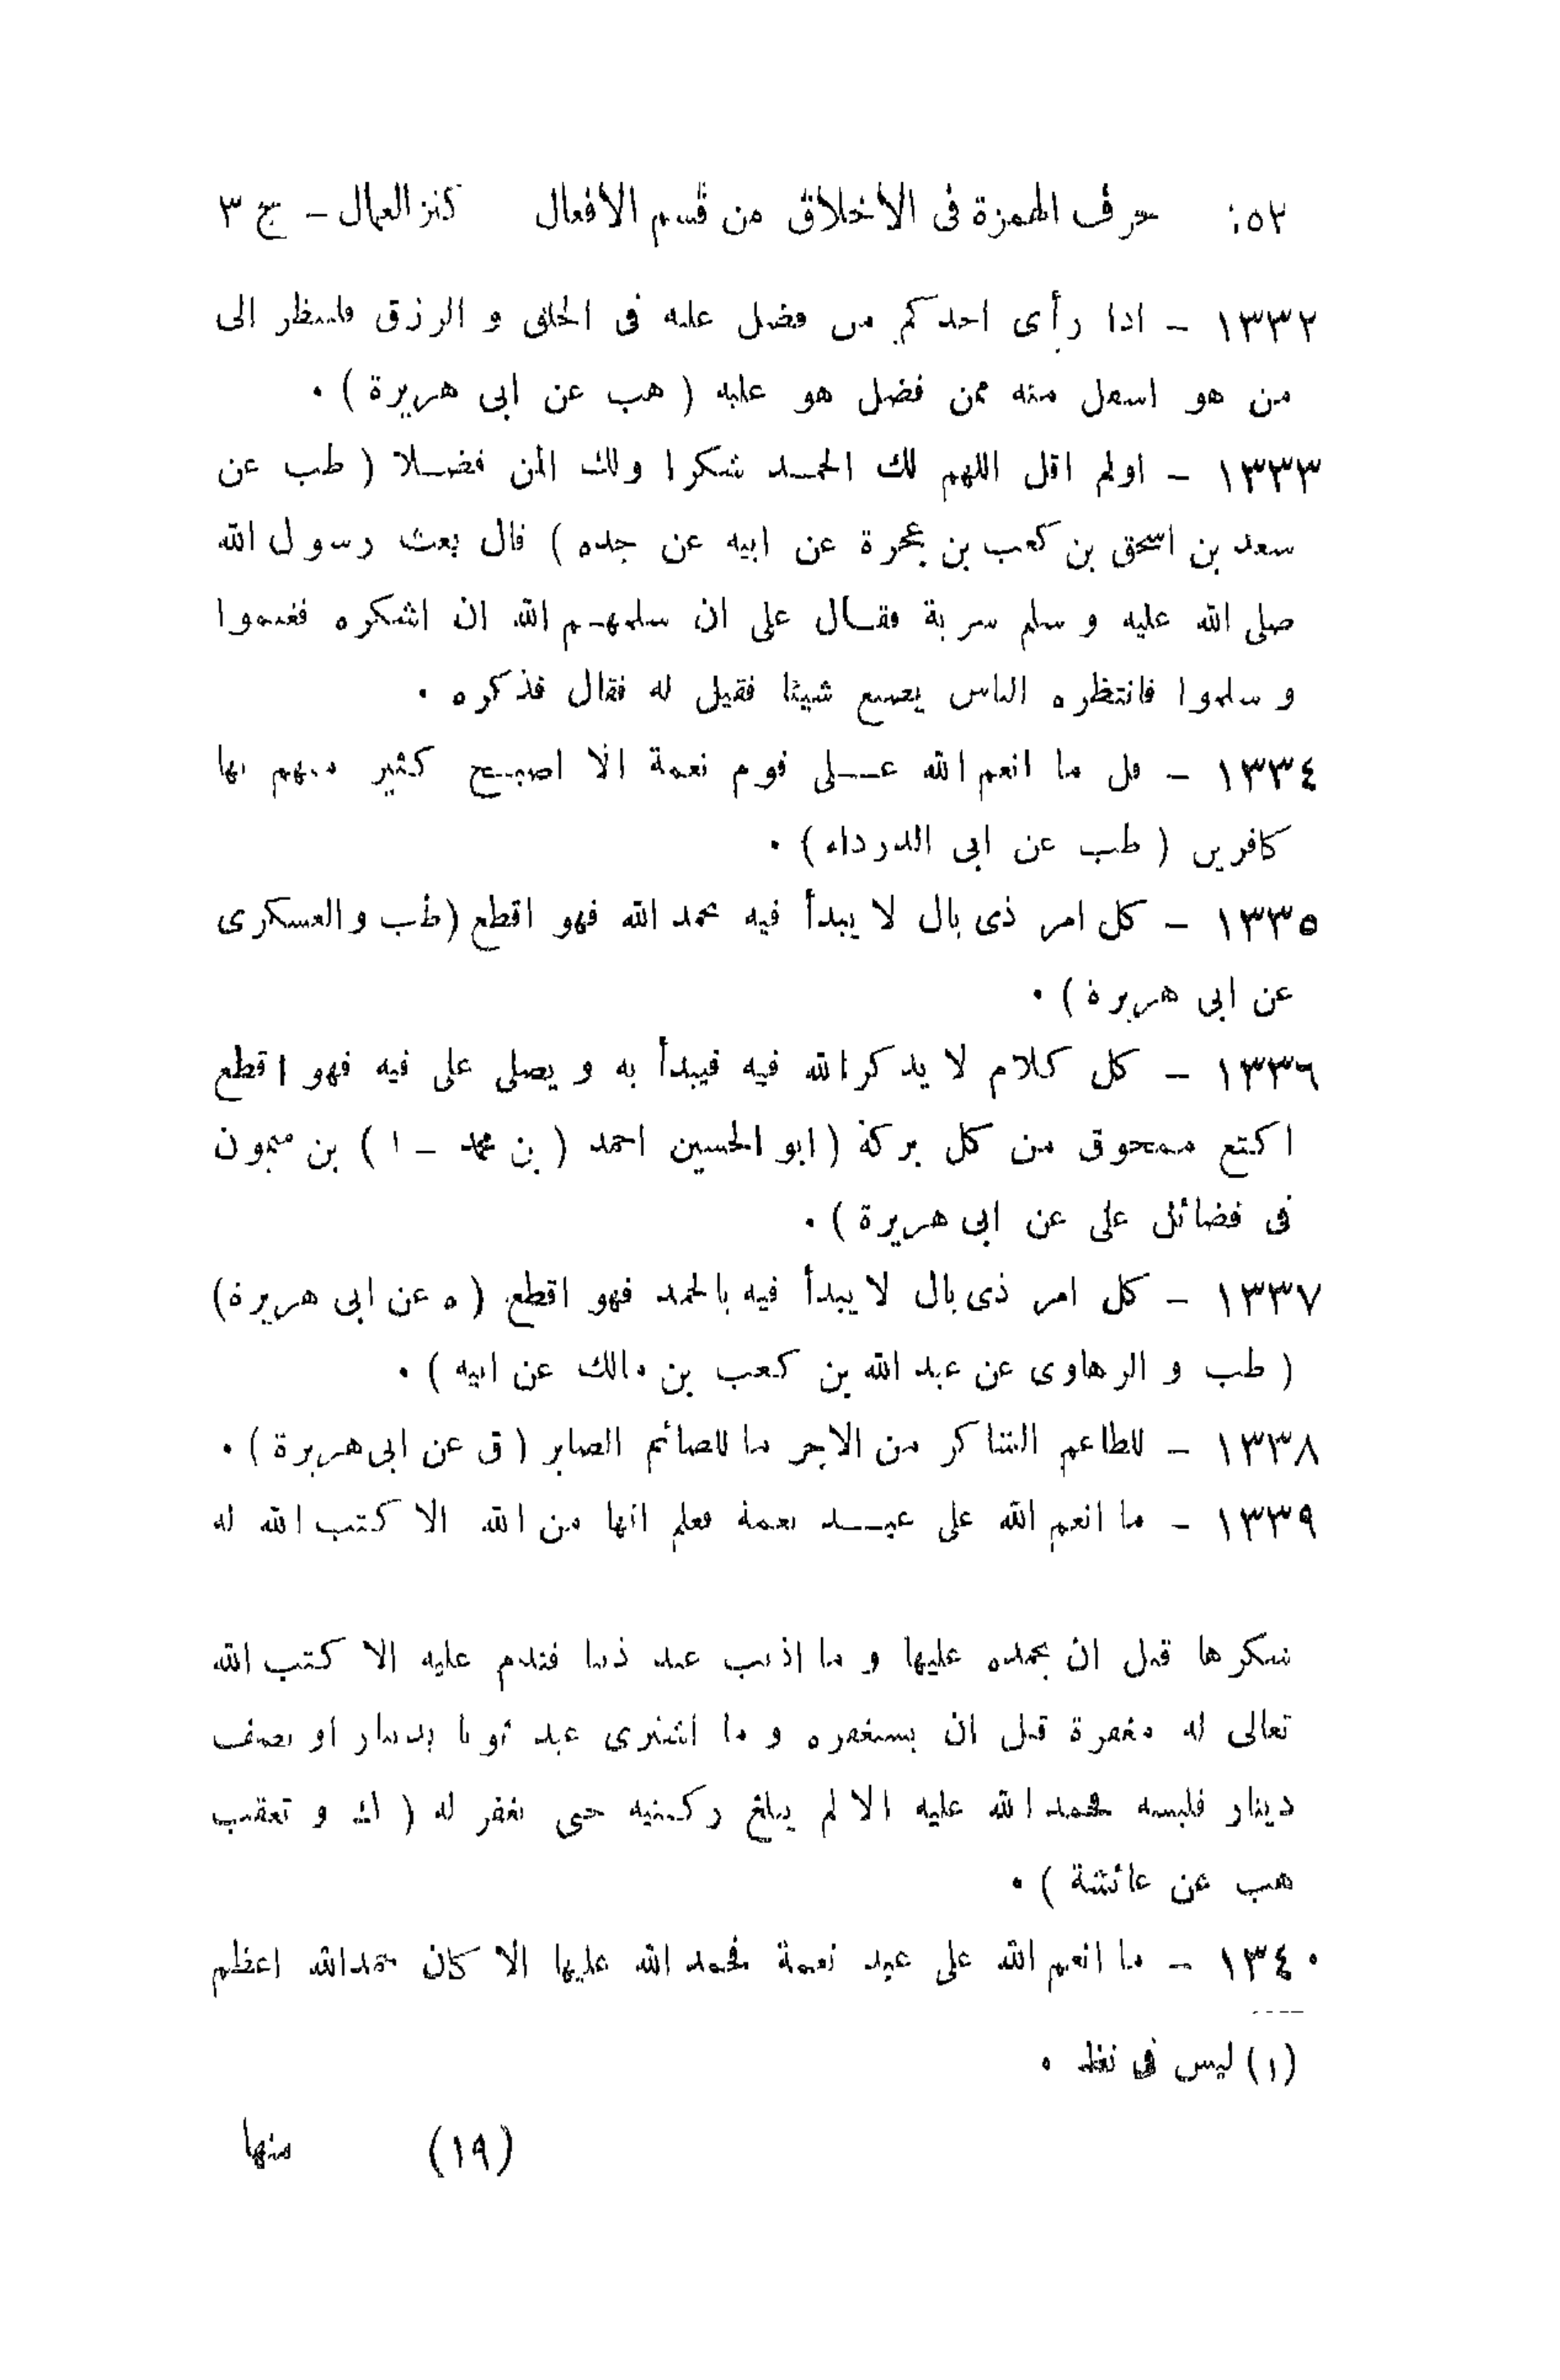 ١٥٢ حرف الهمزة فى الاخلاق من قسم الافعال كنز العمال – ج ٣
١٣٣٢ – اذا رأى احدكم من فضل عليه فى الخلق و الرزق فلينظر الى
من هو اسفل منه ممن فضل هو عليه ( هب عن ابى هريرة ) .
١٣٣٣ – اولم اقل اللهم لك الحمد شكرا ولك المن فضلا ( طب عن
سعد بن اسحق بن كعب بن عجرة عن ابيه عن جده ) قال بعث رسول الله
صلى الله عليه و سلم سرية فقال على ان سلمهم الله ان اشكره فغنموا
و سلموا فانتظره الناس يصنع شيئا فقيل له فقال فذكره .
١٣٣٤ – قل ما انعم الله على قوم نعمة الا اصبح كثير منهم بها
كافرين ( طب عن ابى الدرداء ) .
١٣٣٥ – كل امر ذى بال لا يبدأ فيه بحمد الله فهو اقطع (طب و العسكرى
عن ابى هريرة ) .
١٣٣٦ – كل كلام لا يذكر الله فيه فيبدأ به و يصلى على فيه فهو اقطع
اكتع ممحوق من كل بركة ( ابو الحسين احمد ( بن محمد – ١ ) بن ميمون
فى فضائل على عن ابى هريرة ) .
١٣٣٧ – كل امر ذى بال لا يبدأ فيه بالحمد فهو اقطع ( ه عن ابى هريرة)
( طب و الرهاوى عن عبد الله بن كعب بن مالك عن ابيه ) .
١٣٣٨ – للطاعم الشاكر من الاجر ما للصائم الصابر ( ق عن ابى هريرة ) .
١٣٣٩ – ما انعم الله على عبد نعمة فعلم انها من الله الا كتب الله له
شكرها قبل ان يحمده عليها و ما اذنب عبد ذنبا فندم عليه الا كتب الله
تعالى له مغفرة قبل ان يستغفره و ما اشترى عبد ثوبا بدينار او نصف
دينار فلبسه فحمد الله عليه الا لم يبلغ ركبتيه حتى يغفر له ( ك و تعقب
هب عن عائشة ) .
١٣٤٠ – ما انعم الله على عبد نعمة فحمد الله عليها الا كان حمد الله اعظم
(١) ليس فى نظ .
(١٩) منها